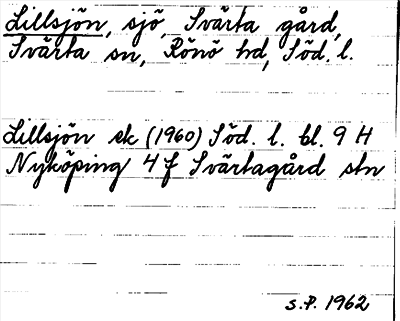 Lillsjön, sjö, Svärta gård,
Svärta sn, Rönö hd, Söd. l.
Lillsjön ek (1960) Söd. l. bl. 9 H
Nyköping 4 f Svärtagård stn
S.P. 1962